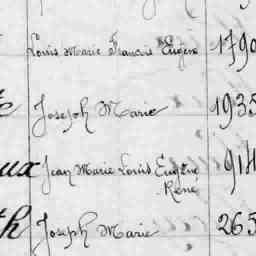 Louis Marie Francis Eugène 1790
Joseph Marie 1935
ux Jean Marie Louis Eugène 914
René
th Joseph Marie 265